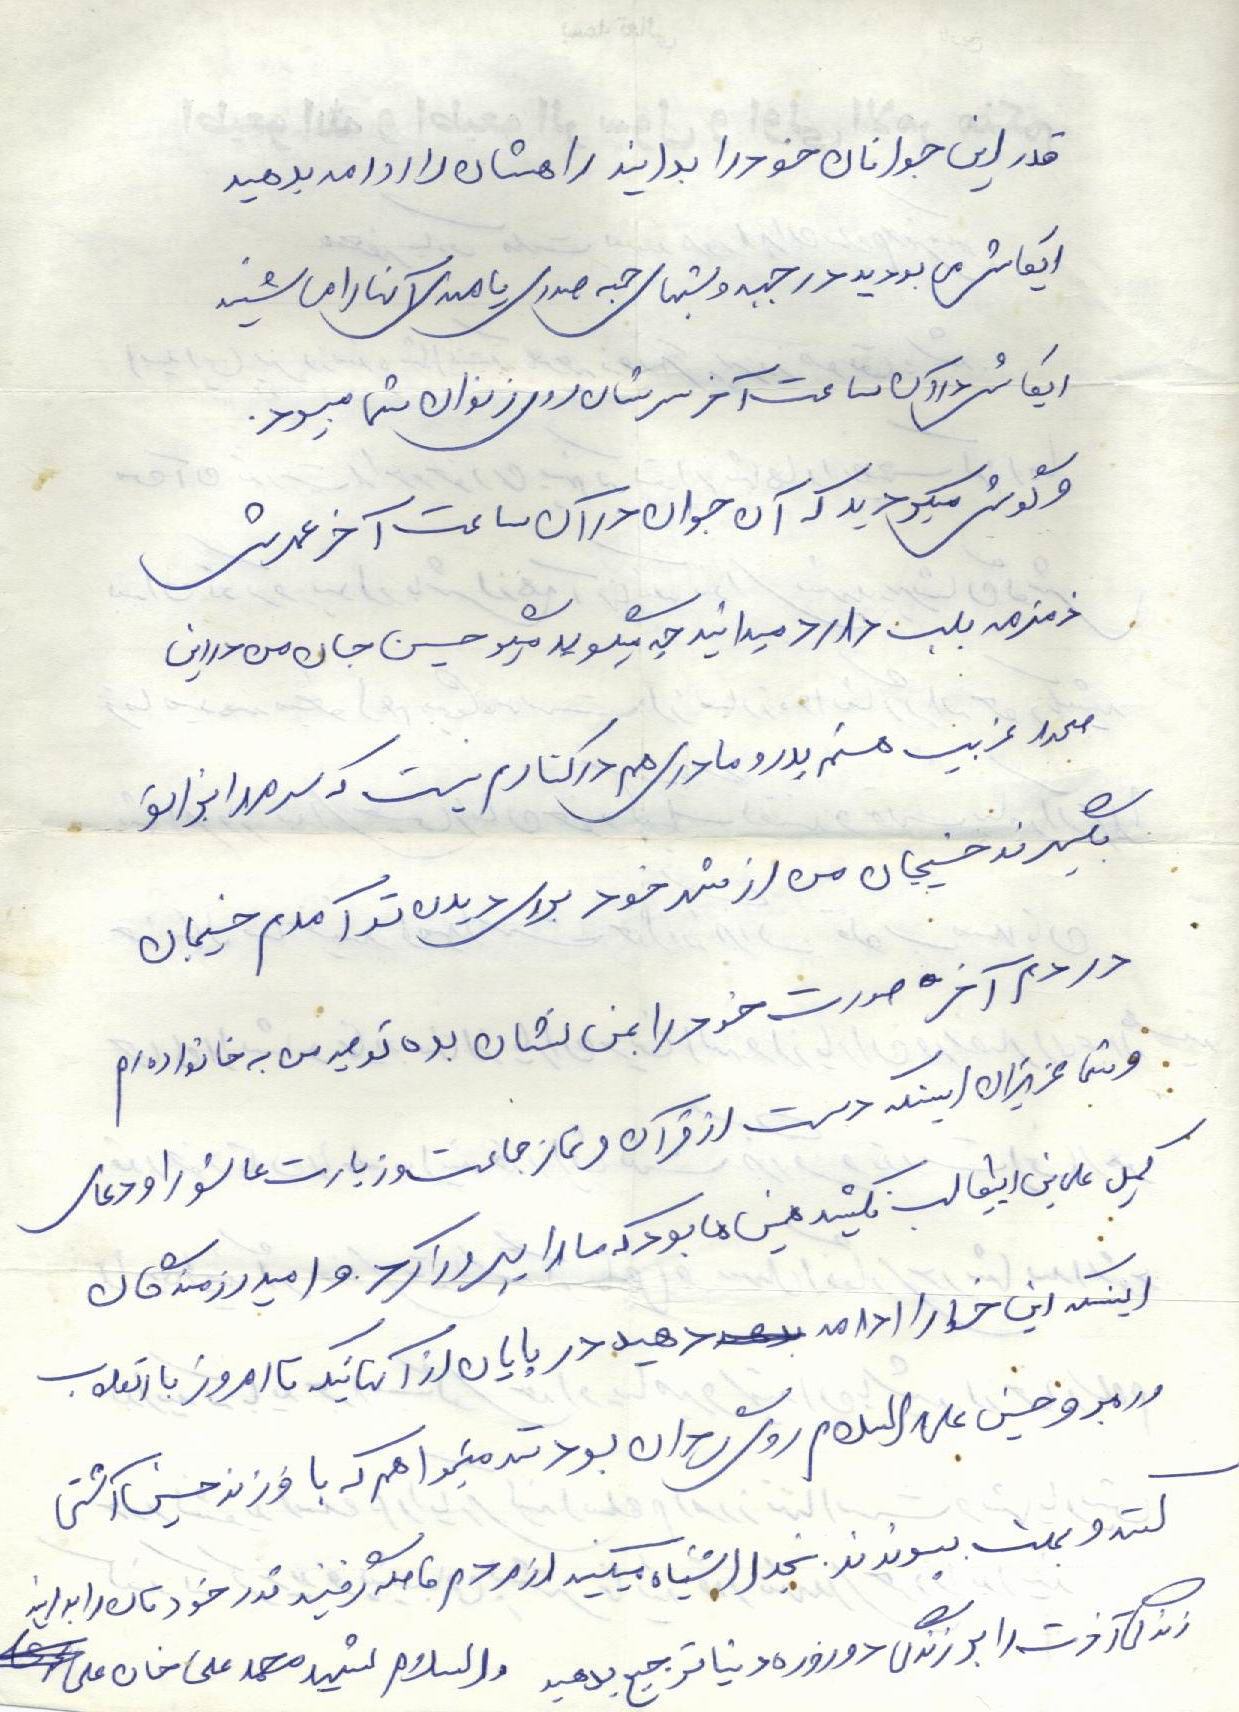 قدر این جوانان خود را بدانید راهشان را ادامه بدهید
ایکاش می بودید در جبهه و شبهای جبهه صدای یا مهدی آنها را می شنید
ایکاش در آن ساعت آخر سرشان روی زنوان شما میبود.
و گوش میکردید که آن جوان در آن ساعت آخر عمرش
زمزمه بلب دارد میدانید چه میگوید میگو حسین جان من در این
صحرا غریب هستم پدر و مادری هم در کنارم نیست که سر مرا بزانو
بگیرند حسینجان من از شهر خود برای دیدن تو آمدم حسینجان
در دم آخر صورت خود را بمن نشان بده توصیه من به خانواده ام
و شما عزیزان اینکه دست از قرآن و نماز جماعت و زیارت عاشورا و دعای
کمیل علی بن ابیطالب نکشید همین ها بود که ما را پیروز کرد. و امید رزمندگان
اینکه این خط را ادامه دهید در پایان از آنهائیکه تا امروز با انقلاب
و رهبر و حسین علیه السلام روی گردان بودند میخواهم که با فرزند حسین آشتی
کنند و بملت بپیوندند. بخدا اشتباه میکنید از مردم فاصله گرفتید قدر خودتان را بدانید
زندگی آخرت را بر زندگی دو روزه دنیا ترجیح بدهید والسلام شهید محمد علی خان علی